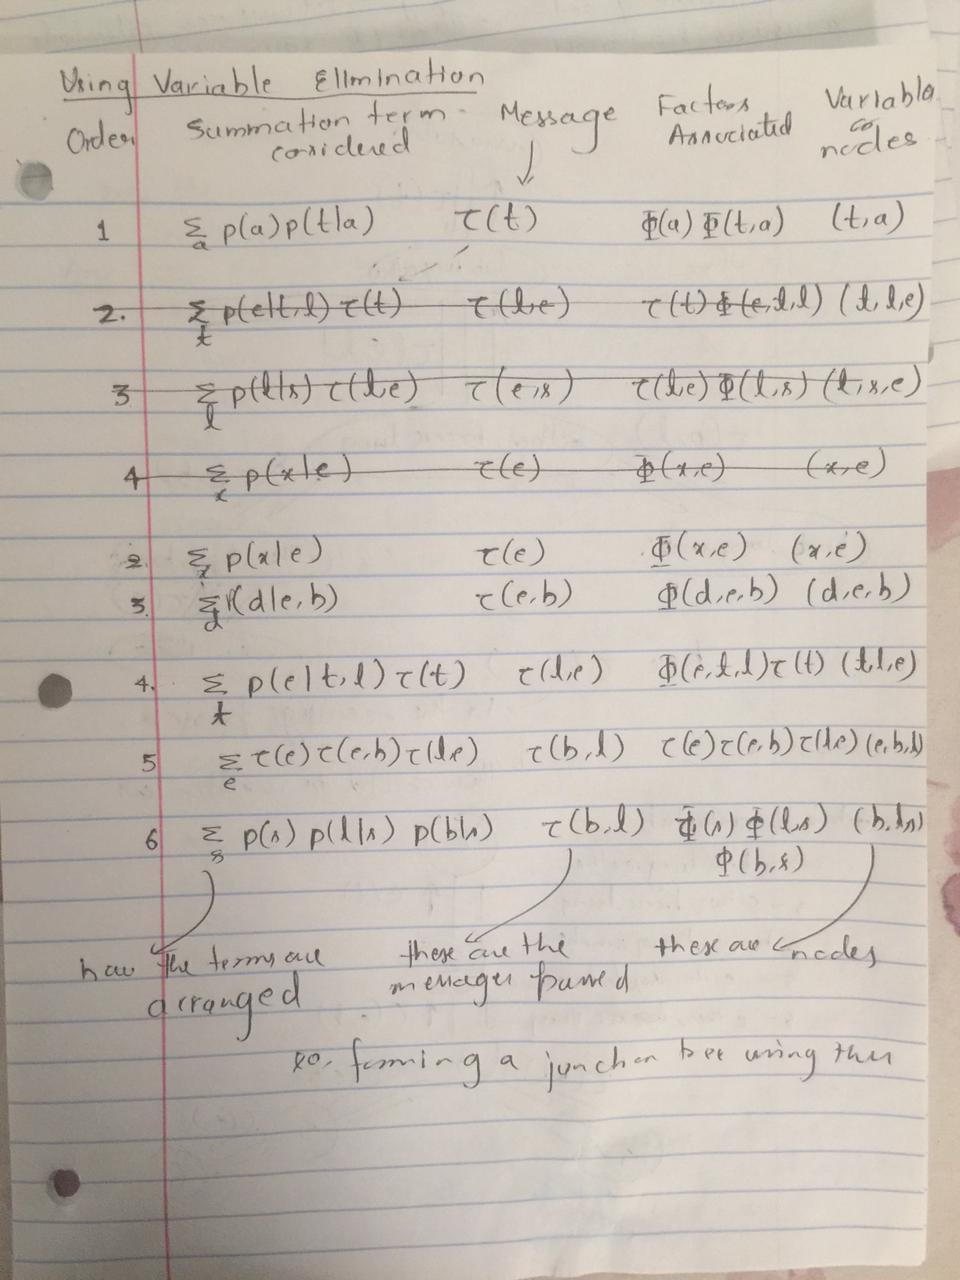 Using Variable Elimination
Order Summation term cosidered Message Factors Associated Variable nodes
1 Σ_a p(a)p(t|a) τ(t) Φ(a) Φ(t,a) (t,a)
2. Σ_t p(e|t,l) τ(t) τ(l,e) τ(t) Φ(e,l,l) (l,l,e)
3 Σ_l p(l|s) τ(l,e) τ(e,s) τ(l,e) Φ(l,s) (l,s,e)
4 Σ_x p(x|e) τ(e) Φ(x,e) (x,e)
2. Σ_x p(x|e) τ(e) Φ(x,e) (x,e)
3. Σ_d P(d|e,b) τ(e,b) Φ(d,e,b) (d,e,b)
4. Σ_t p(e|t,l) τ(t) τ(l,e) Φ(e,t,l) τ(t) (t,l,e)
5 Σ_e τ(e) τ(e,b) τ(l,e) τ(b,l) τ(e) τ(e,b) τ(l,e) (e,b,l)
6 Σ_s p(s) p(l|s) p(b|s) τ(b,l) Φ(s) Φ(l,s) (b,l,s)
Φ(b,s)
how the terms are arranged
these are the messages passed
these are nodes
so, forming a junction tree using this